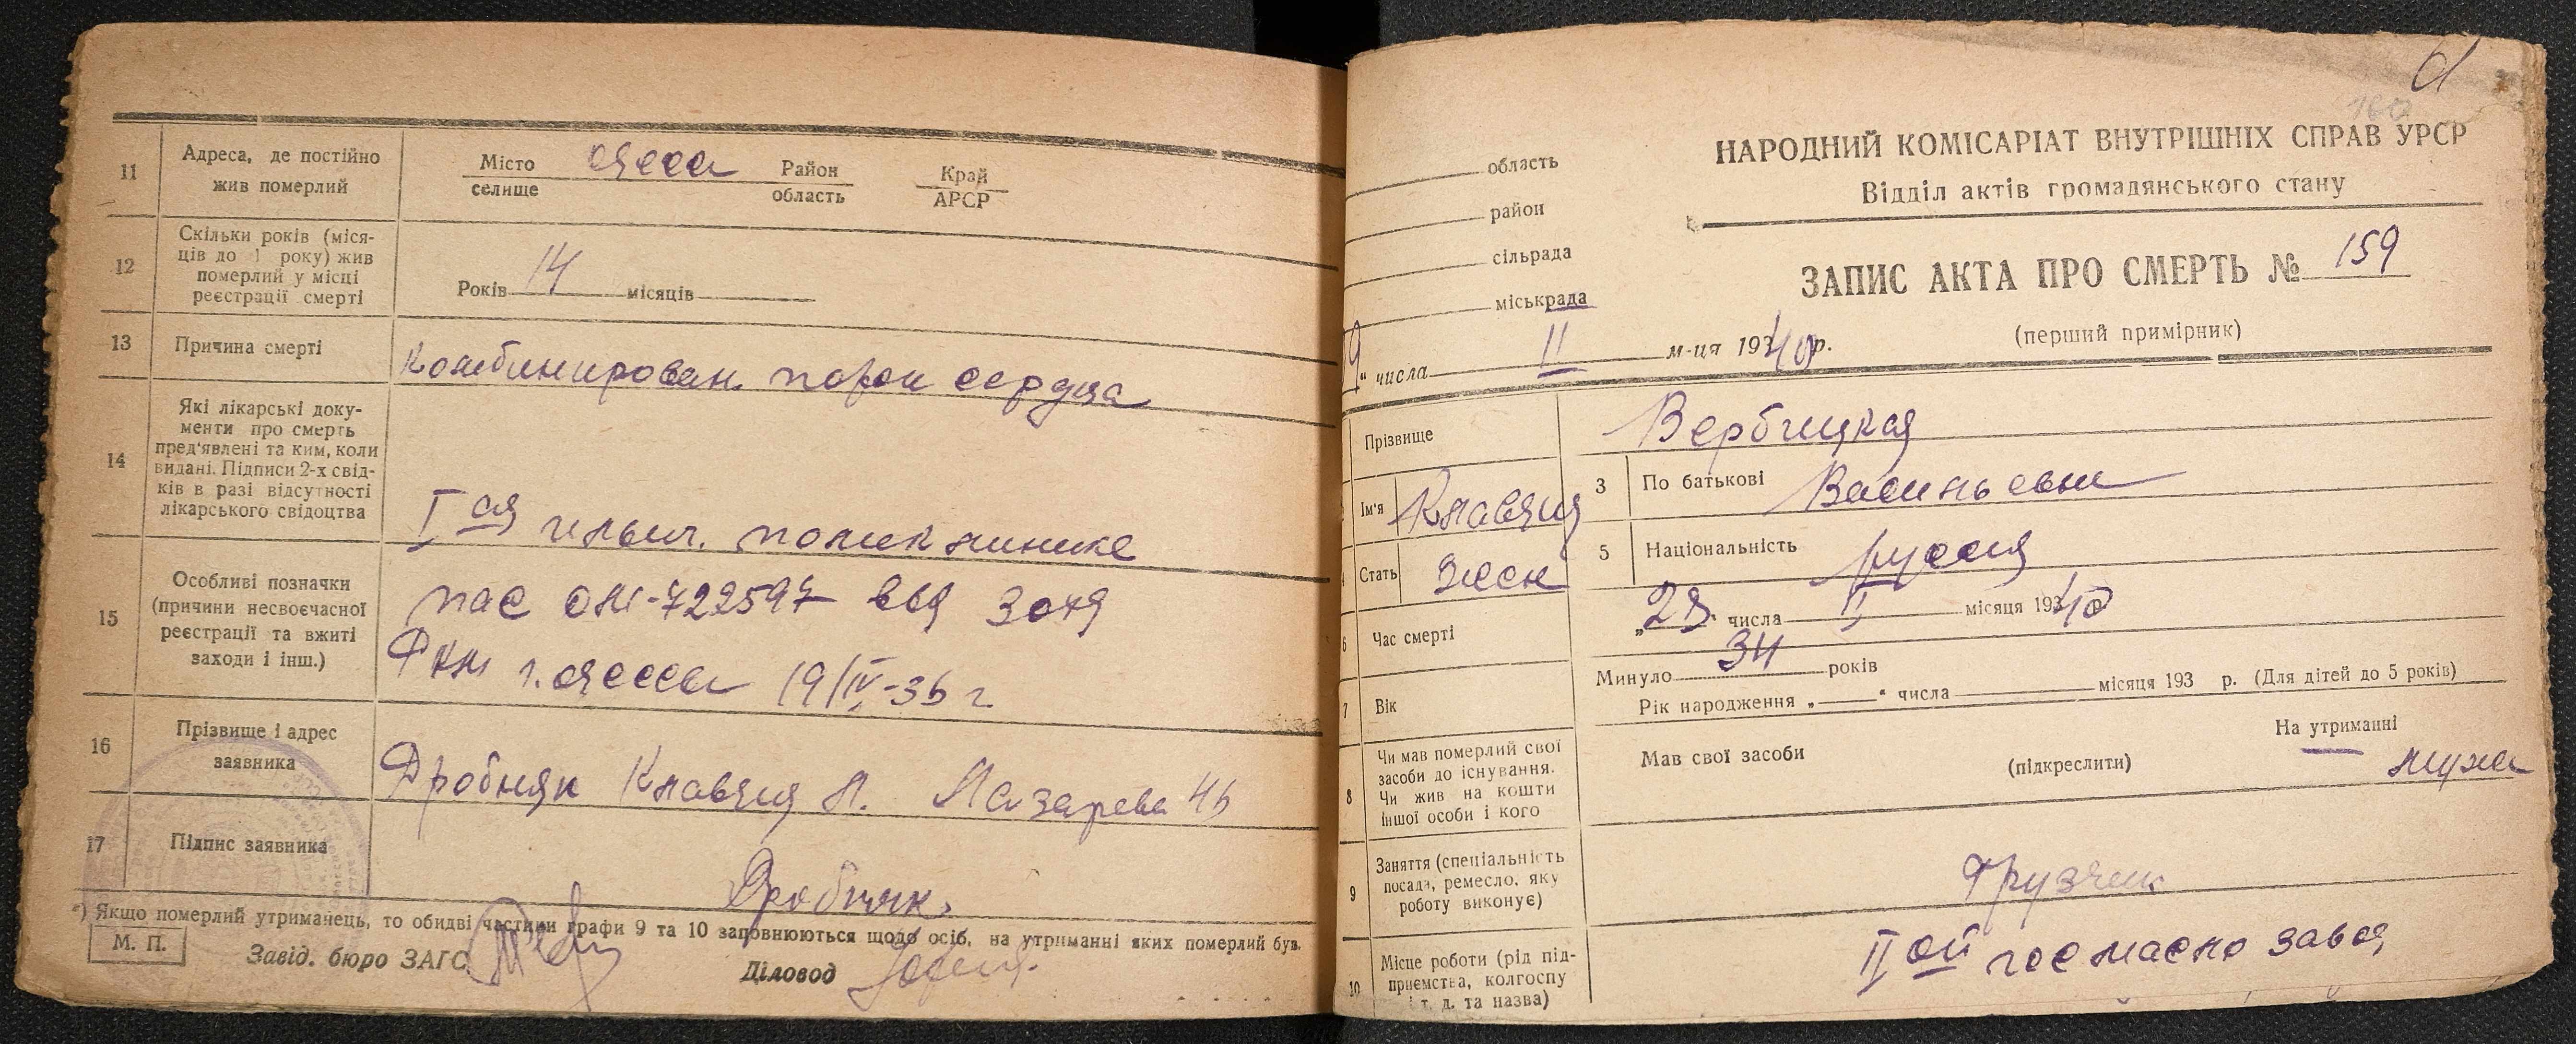 11
Адреса, де постійно
жив померлий
Місто Одесса Район Край
селище область АРСР
12
Скільки років (міся-
ців до 1 року) жив
померлий у місці
реєстрації смерті
Років 14 місяців
13
Причина смерті
Комбинирован. порок сердца
14
Які лікарські доку-
менти про смерть
пред'явлені та ким, коли
видані. Підписи 2-х свід-
ків в разі відсутності
лікарського свідоцтва
I ая поликлинике
15
Особливі позначки
(причини несвоєчасної
реєстрації та вжиті
заходи і інш.)
пас 722597 выд 3
РКМ г. Одессы 19/IV-36 г
16
Прізвище і адрес
заявника
Дробняк Клавдия Л. Лазарева 46
17
Підпис заявника
Дробняк.
*) Якщо померлий утриманець, то обидві частини графи 9 та 10 заповнюються щодо осіб, на утриманні яких померлий був.
М. П.
Завід. бюро ЗАГС
Діловод
160
область
район
сільрада
міськрада
9 " числа II м-ця 1940 р.
НАРОДНИЙ КОМІСАРІАТ ВНУТРІШНІХ СПРАВ УРСР
Відділ актів громадянського стану
ЗАПИС АКТА ПРО СМЕРТЬ № 159
(перший примірник)
Прізвище
Вербицкая
Ім'я Клавдия
3 По батькові Васильевн
Стать женск
5 Національність русск
6 Час смерті
числа місяця 1940
7 Вік
Минуло 34 років
Рік народження „ " числа місяця 193 р. (Для дітей до 5 років)
8
Чи мав померлий свої
засоби до існування.
Чи жив на кошти
іншої особи і кого
Мав свої засоби (підкреслити) На утриманні
мужа
9
Заняття (спеціальність
посада, ремесло, яку
роботу виконує)
Грузчик
10
Місце роботи (рід під-
приємства, колгоспу
і т. д. та назва)
II ой госмасло завод